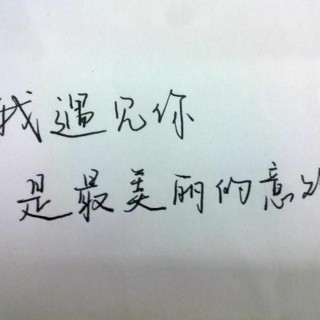 我遇见你
是最美丽的意外